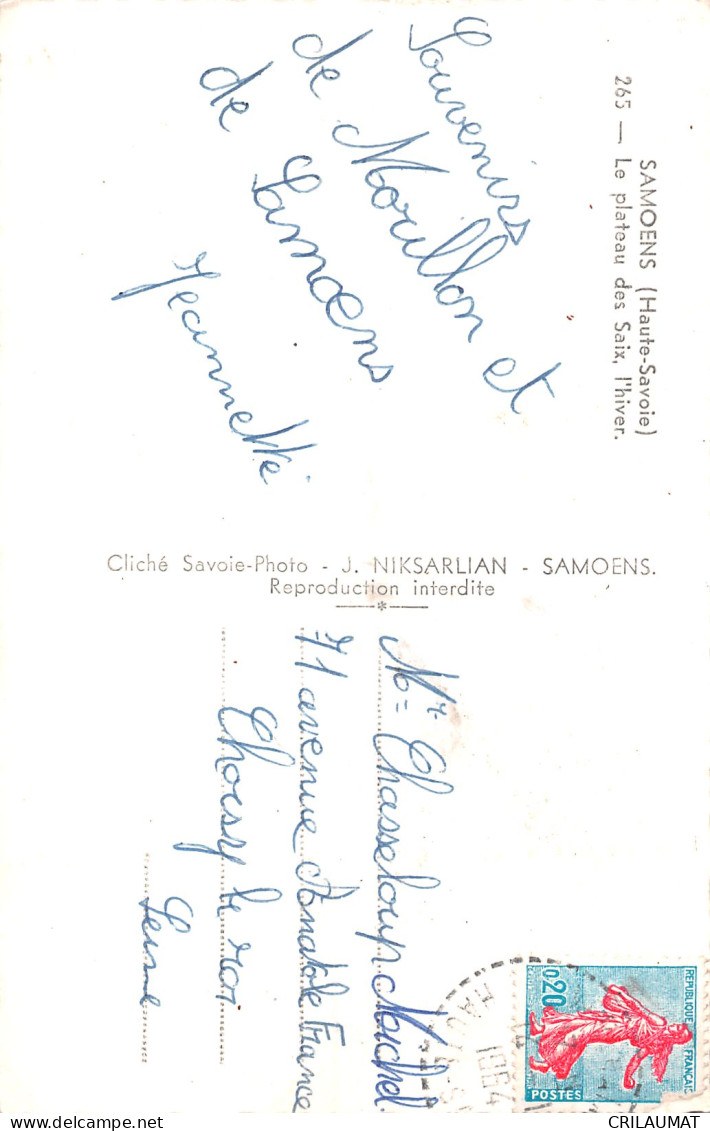 SAMOENS (Haute-Savoie)
265 — Le plateau des Saix, l'hiver.
Souvenirs
de Morillon et
de Samoens
Jeannette
Cliché Savoie-Photo - J. NIKSARLIAN - SAMOENS.
Reproduction interdite
Mr Chasseloup Michel
71 avenue Anatole France
Choisy le roi
Seine
REPUBLIQUE FRANÇAISE
0,20
POSTES
CRILAUMAT